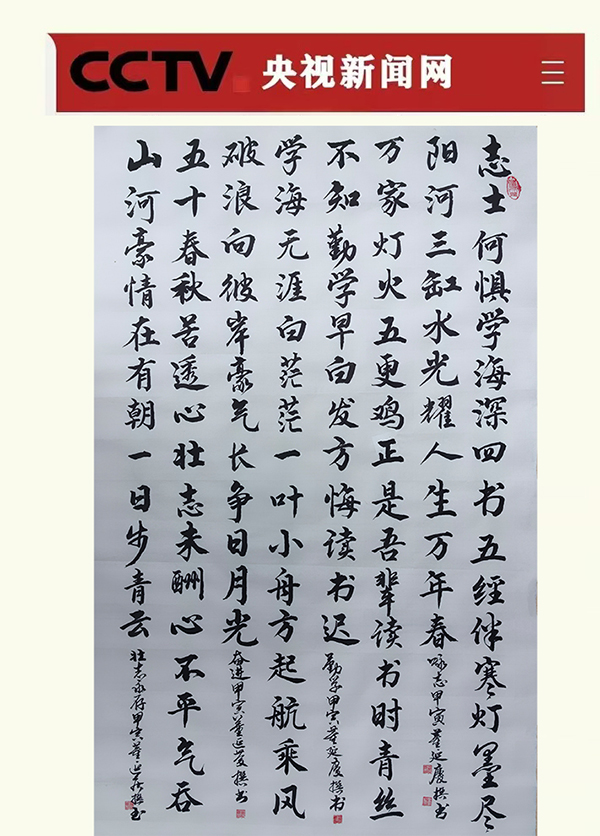 CCTV 央视新闻网
志士何惧学海深四书五经伴寒灯墨尽
阳河三缸水光耀人生万年春 咏志甲寅董延庆撰书
万家灯火五更鸡正是吾辈读书时青丝
不知勤学早白发方悔读书迟 勤学甲寅董延庆撰书
学海无涯白茫茫一叶小舟方起航乘风
破浪向彼岸豪气长争日月光 奋进甲寅董延庆撰书
五十春秋苦透心壮志未酬心不平气吞
山河豪情在有朝一日步青云 壮志永存甲寅董延庆撰书